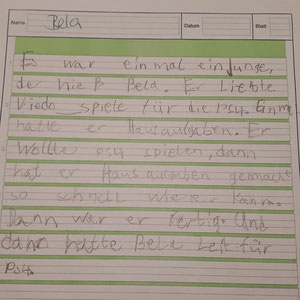 Name Bela Datum Blatt
Es war einmal ein Junge,
der hieß Bela. Er Liebte
Viedo_spiele für die Psy. Einma
hatte er Hausaufgaben. Er
Wollte psy spielen, dann
hat er Hausaugaben gemacht
so schnell wie er kann.
Dann war er fertig. Und
dann hatte Bela Zeit für
Ps4.